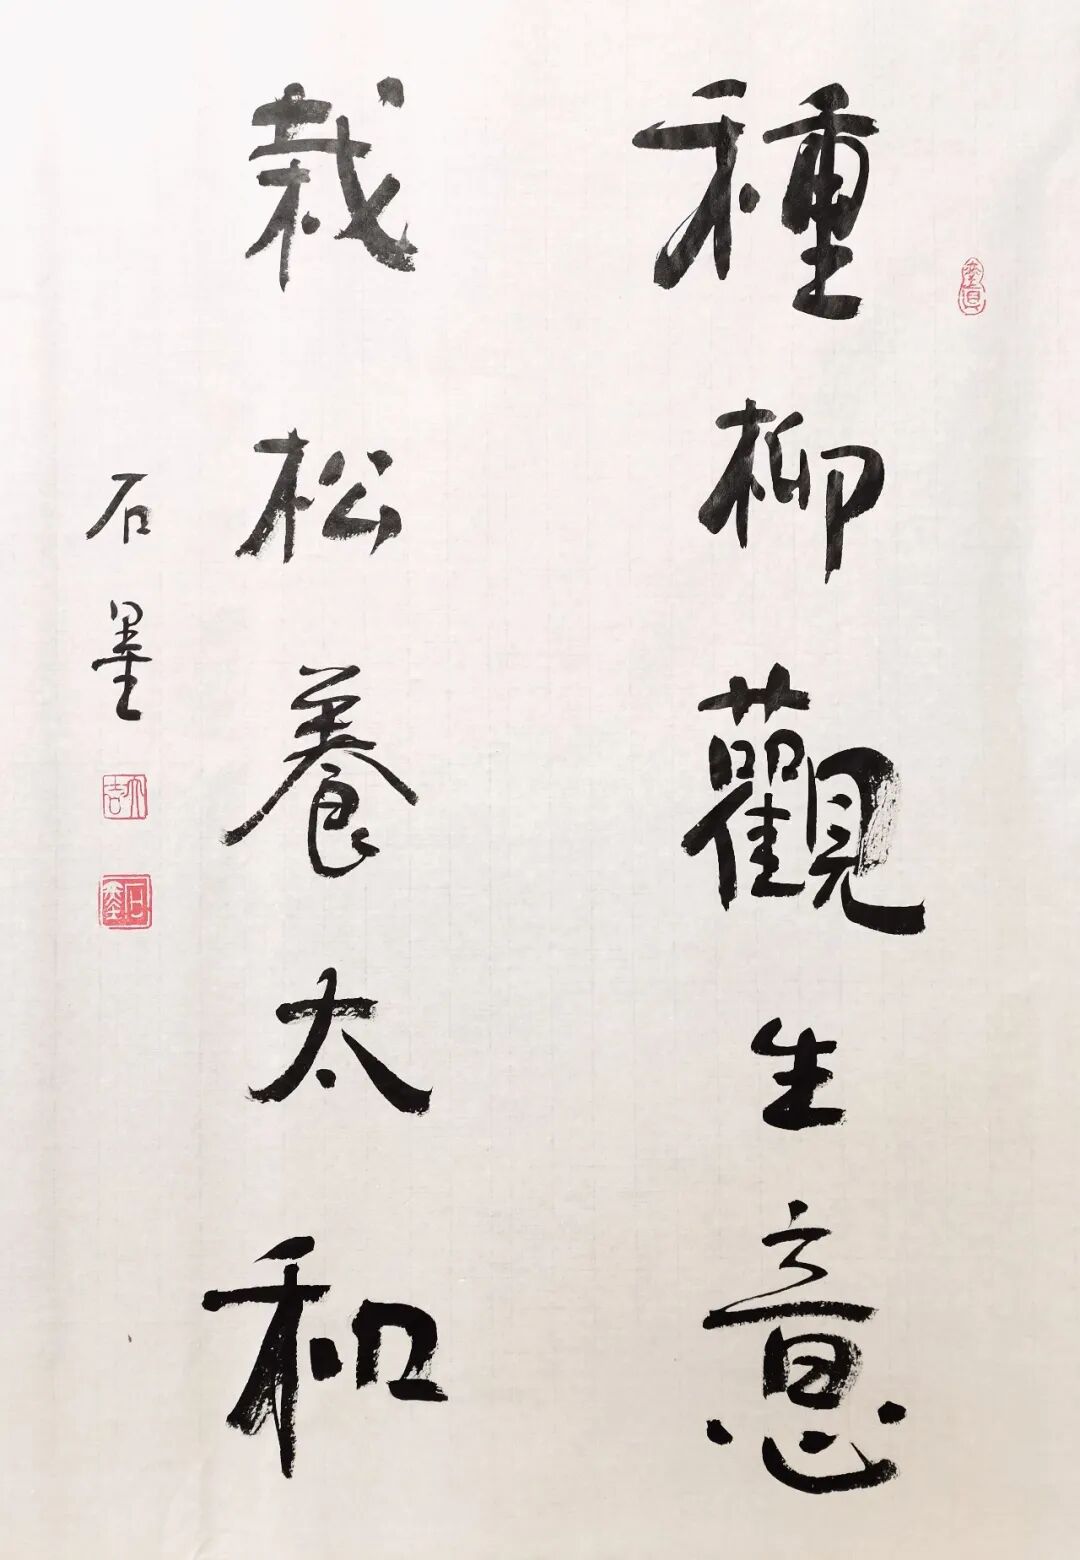 種柳觀生意
栽松養太和
石墨